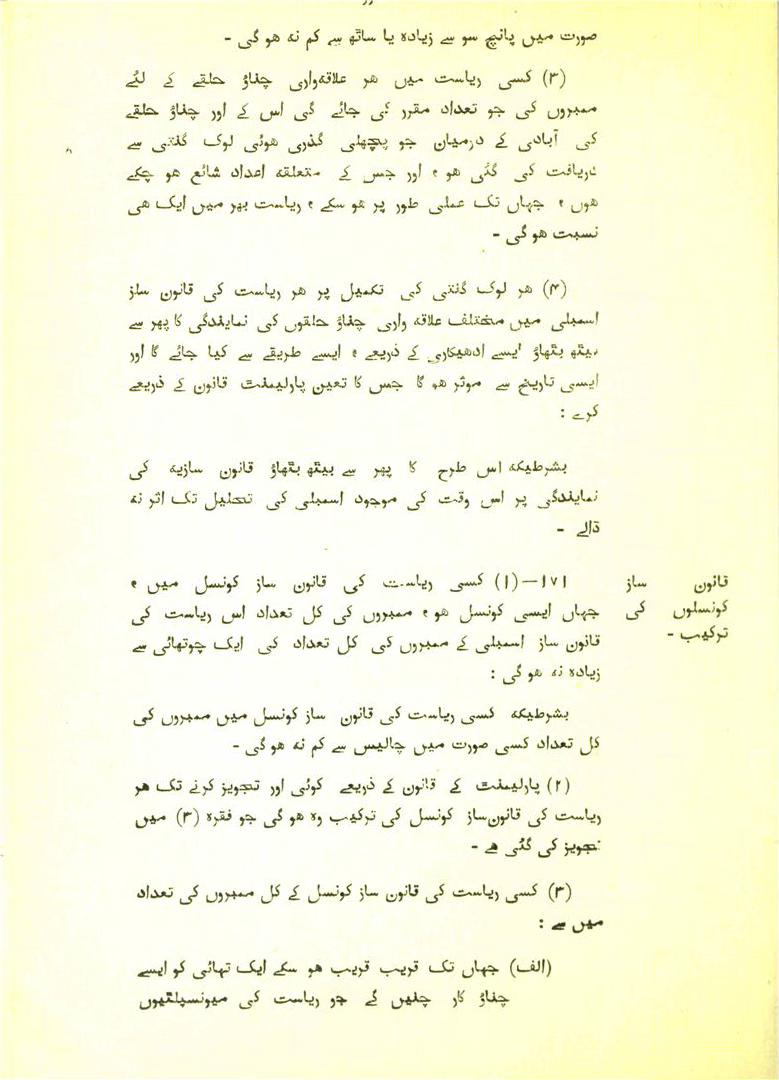 صورت میں پانچ سو سے زیادہ یا ساٹھ سے کم نہ ھو گی -
(۳) کسی ریاست میں ھر علاقہ‌واری چناؤ حلقے کے لئے
ممبروں کی جو تعداد مقرر کی جائے گی اس کے اور چناؤ حلقے
کی آبادی کے درمیان جو پچھلی گذری ھوئی لوک گنتی سے
دریافت کی گئی ھو ، اور جس کے متعلقہ اعداد شائع ھو چکے
ھوں ، جہاں تک عملی طور پر ھو سکے ، ریاست بھر میں ایک ھی
نسبت ھو گی -
(۴) ھر لوک گنتی کی تکمیل پر ھر ریاست کی قانون ساز
اسمبلی میں مختلف علاقہ واری چناؤ حلقوں کی نمایندگی کا پھر سے
بیٹھ بٹھاؤ ایسے ادھیکاری کے ذریعے ، ایسے طریقے سے کیا جائے گا اور
ایسی تاریخ سے موثر ھو گا جس کا تعین پارلیمنٹ قانون کے ذریعے
کرے :
بشرطیکہ اس طرح کا پھر سے بیٹھ بٹھاؤ قانون سازیہ کی
نمایندگی پر اس وقت کی موجود اسمبلی کی تحلیل تک اثر نہ
ڈالے -
قانون ساز
کونسلوں کی
ترکیب -
۱۷۱—(۱) کسی ریاست کی قانون ساز کونسل میں ،
جہاں ایسی کونسل ھو ، ممبروں کی کل تعداد اس ریاست کی
قانون ساز اسمبلی کے ممبروں کی کل تعداد کی ایک چوتھائی سے
زیادہ نہ ھو گی :
بشرطیکہ کسی ریاست کی قانون ساز کونسل میں ممبروں کی
کل تعداد کسی صورت میں چالیس سے کم نہ ھو گی -
(۲) پارلیمنٹ کے قانون کے ذریعے کوئی اور تجویز کرنے تک ھر
ریاست کی قانون‌ساز کونسل کی ترکیب وہ ھو گی جو فقرہ (۳) میں
تجویز کی گئی ھے -
(۳) کسی ریاست کی قانون ساز کونسل کے کل ممبروں کی تعداد
میں سے :
(الف) جہاں تک قریب قریب ھو سکے ایک تہائی کو ایسے
چناؤ کار چنیں گے جو ریاست کی میونسپلٹیوں